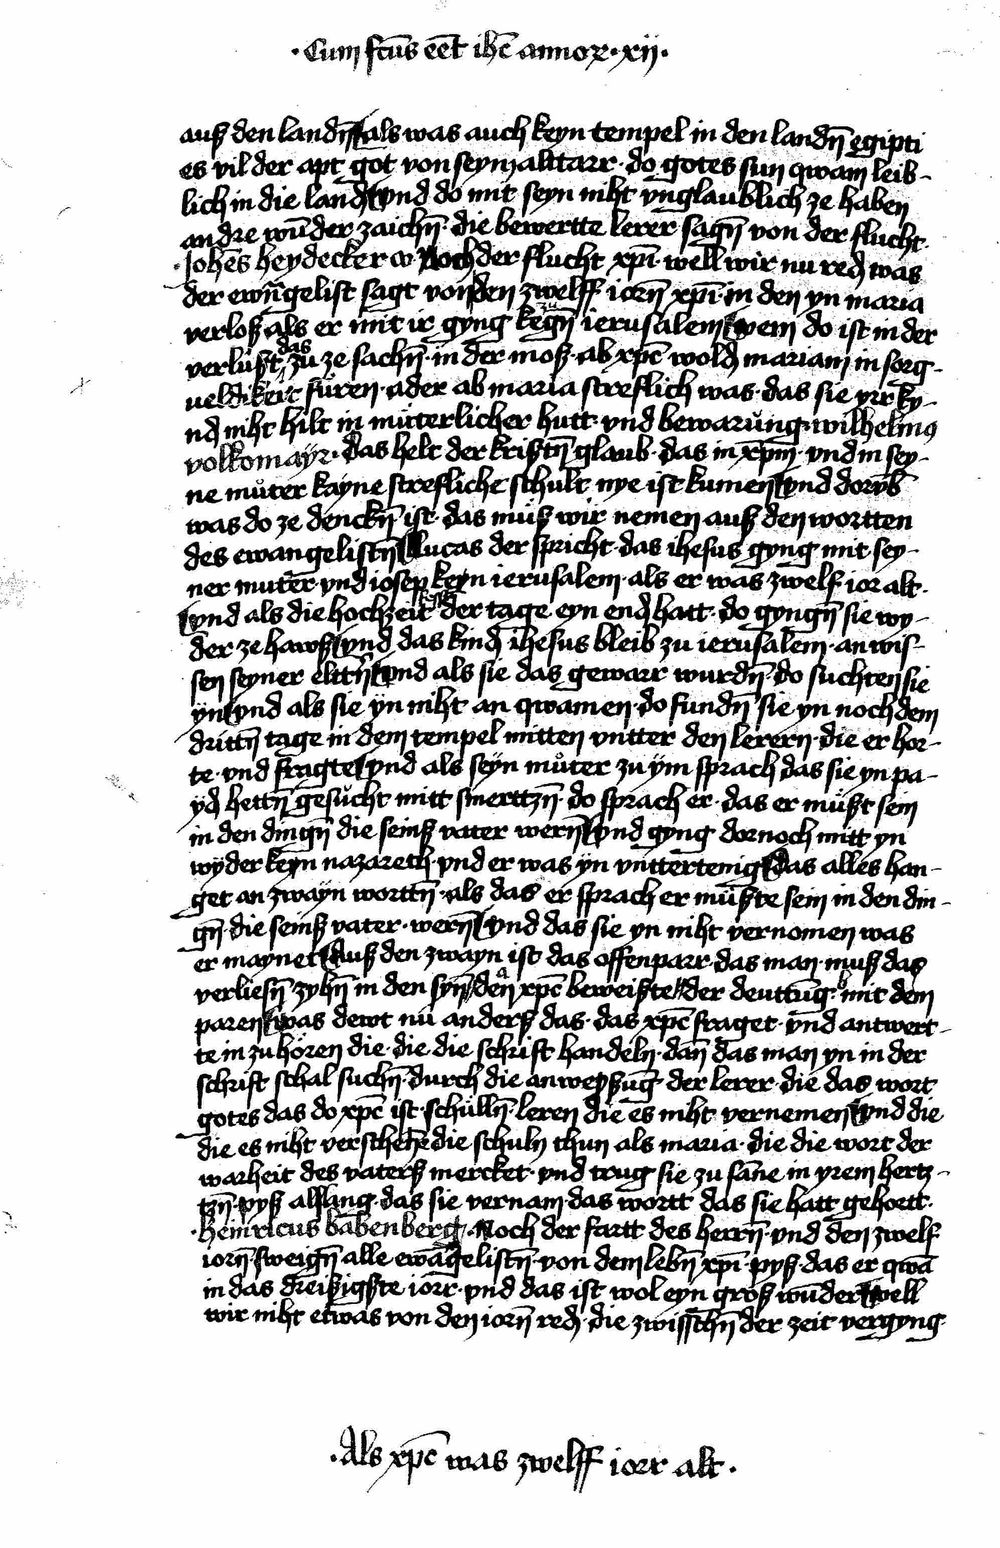 · Cum fcūs eēt ihc̄ annoꝝ · xij ·
auß den landn̄ als was auch keyn tempel in den landn̄ egipti
es vil der apt got von seym alttarr · do gotes sun qwam leib-
lich in die land vnd do mit seyn niht vnglaublich ze haben
andre wūder zaichn̄ · die bewertte lerer sagn̄ von der flucht
· Johēs heydecker Noch der flucht xp̄i · well wir nu red was
der ewāgelist sagt von den zwelff iorn̄ xp̄i · in den yn maria
verloß als er mit ir gyng kegn̄ ierusalem wem do ist in der
verlußt das zu ze sachn̄ · in der moß · ab xp̄c wold mariam in sorg-
ueldikeit füren · ader ab maria streflich was · das sie yrr ky-
nd niht hilt in müterlicher hutt · vnd bewarüng · wilhelmꝰ
volkomayr · das helt der kristn̄ glaub · das in xp̄m · vnd in sey-
ne můter kayne strefliche schult nye ist kumen vnd dorvb̄
was do ze denckn̄ ist · das müß wir nemen auß den wortten
des ewangelistn̄ lucas der spricht · das ihesus gyng mit sey-
ner muter · vnd iosep keyn ierusalem · als er was zwelf ior alt ·
vnd als die hochzeit der tage · eyn end hatt · do gyngn̄ sie wy-
der ze hawß vnd das kind ihesus bleib zu ierusalem · an wis-
sen seyner elttn̄ vnd als sie das gewarr wurdn̄ · do suchten sie
yn vnd als sie yn niht an qwamen · do fundn̄ sie yn noch dem
drittn̄ tage in dem tempel mitten vntter den lerern · die er hor-
te · vnd fragte vnd als seyn můter zu ym sprach das sie yn pa-
yd hettn̄ gesücht mitt smerttzn̄ · do sprach er · das er müßt sein
in den dingn̄ die seinß vater wern̄ vnd gyng dornoch mitt yn
wyder keyn nazareth · vnd er was yn vnttertenig das alles han-
get an zwayn worttn̄ · als das er sprach er müßte sein in den din-
gn̄ · die seinß vater · wern̄ vnd das sie yn niht vernomen was
er maynet Auß den zwayn ist das offenparr · das man muß das
verliesn̄ zyhn̄ in den syn̄ den xp̄c beweißte der deuttūg · mit dem
paren was dewt nü anderß das · das xp̄c fraget · vnd antwert-
te in zu hören die · die die schrift handeln · dan̄ das man yn in der
schrift schal suchn̄ · durch die anweyßūg der lerer · die das wort
gotes das do xp̄c ist · schülln̄ · leren die es niht vernemen vnd die
die es niht verschehē die schuln thun als maria · die die wort der
warheit des vaterß mercket · vnd trug sie zu sāne in yrem hertz-
tzn̄ · pyß alslang · das sie vernam das wortt das sie hatt gehoett ·
· heinricus babenberg · Noch der fartt des herrn̄ · vnd den zwelf
iorn̄ · sweign̄ alle ewāgelistn̄ · von dem lebn̄ xp̄i · pyß · das er qwā
in das dreißigste iorr · vnd das ist wol eyn groß wūder well
wir niht etwas von den iorn̄ red · die zwisschn̄ der zeit vergyng
· Als xp̄c was zwelff iorr alt ·